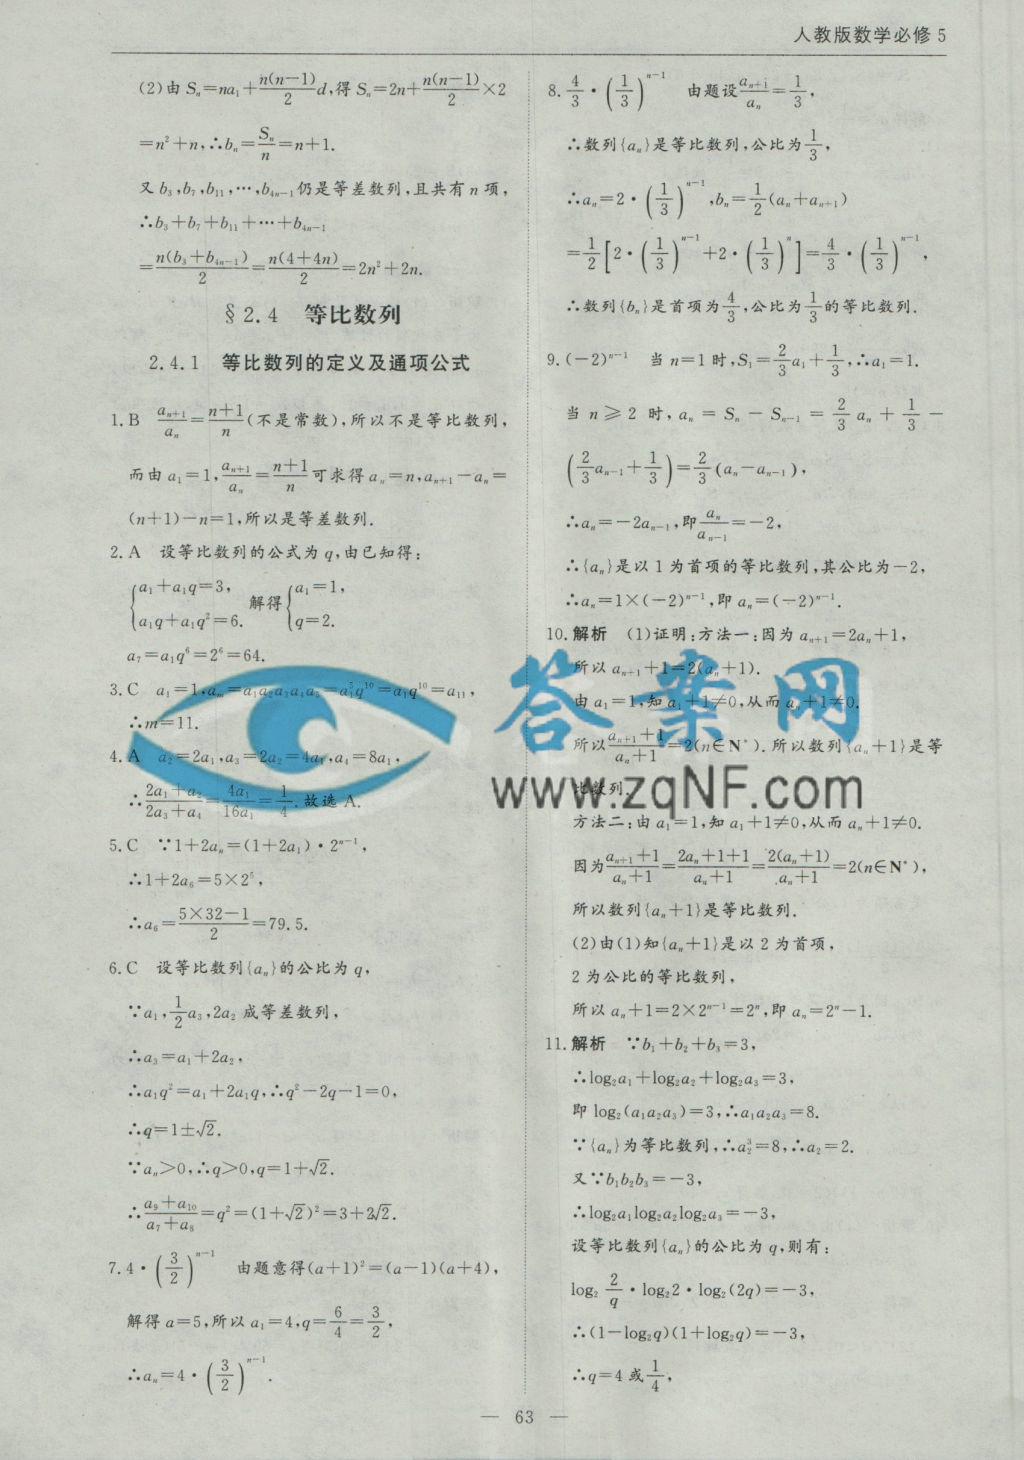 人教版数学必修 5
(2)由 Sₙ=na₁+n(n−1)/2 d,得 Sₙ=2n+n(n−1)/2×2
=n²+n,∴bₙ=Sₙ/n=n+1.
又 b₃,b₇,b₁₁,…,b₄ₙ₋₁仍是等差数列,且共有 n 项,
∴b₃+b₇+b₁₁+…+b₄ₙ₋₁
=n(b₃+b₄ₙ₋₁)/2=n(4+4n)/2=2n²+2n.
§2.4 等比数列
2.4.1 等比数列的定义及通项公式
1.B aₙ₊₁/aₙ=(n+1)/n(不是常数),所以不是等比数列,
而由 a₁=1,aₙ₊₁/aₙ=(n+1)/n可求得 aₙ=n,aₙ₊₁−aₙ=
(n+1)−n=1,所以是等差数列.
2.A 设等比数列的公式为 q,由已知得:
{a₁+a₁q=3, a₁q+a₁q²=6. 解得{a₁=1, q=2.
a₇=a₁q⁶=2⁶=64.
3.C a₁=1,aₘ=a₁a₂a₃a₄a₅=a₁⁵q¹⁰=a₁q¹⁰=a₁₁,
∴m=11.
4.A a₂=2a₁,a₃=2a₂=4a₁,a₄=8a₁,
∴(2a₁+a₂)/(2a₃+a₄)=4a₁/16a₁=1/4.故选 A.
5.C ∵1+2aₙ=(1+2a₁)·2ⁿ⁻¹,
∴1+2a₆=5×2⁵,
∴a₆=(5×32−1)/2=79.5.
6.C 设等比数列{aₙ}的公比为 q,
∵a₁,1/2 a₃,2a₂ 成等差数列,
∴a₃=a₁+2a₂,
∴a₁q²=a₁+2a₁q,∴q²−2q−1=0,
∴q=1±√2.
∵aₙ>0,∴q>0,q=1+√2.
∴(a₉+a₁₀)/(a₇+a₈)=q²=(1+√2)²=3+2√2.
7.4·(3/2)ⁿ⁻¹ 由题意得(a+1)²=(a−1)(a+4),
解得 a=5,所以 a₁=4,q=6/4=3/2,
∴aₙ=4·(3/2)ⁿ⁻¹.
8.4/3·(1/3)ⁿ⁻¹ 由题设aₙ₊₁/aₙ=1/3,
∴数列{aₙ}是等比数列,公比为1/3,
∴aₙ=2·(1/3)ⁿ⁻¹,bₙ=1/2(aₙ+aₙ₊₁)
=1/2[2·(1/3)ⁿ⁻¹+2·(1/3)ⁿ]=4/3·(1/3)ⁿ⁻¹,
∴数列{bₙ}是首项为4/3,公比为1/3的等比数列.
9.(−2)ⁿ⁻¹ 当 n=1 时,S₁=2/3 a₁+1/3,∴a₁=1.
当 n≥2 时,aₙ=Sₙ−Sₙ₋₁=2/3 aₙ+1/3−
(2/3 aₙ₋₁+1/3)=2/3(aₙ−aₙ₋₁),
∴aₙ=−2aₙ₋₁,即aₙ/aₙ₋₁=−2,
∴{aₙ}是以 1 为首项的等比数列,其公比为−2,
∴aₙ=1×(−2)ⁿ⁻¹,即 aₙ=(−2)ⁿ⁻¹.
10.解析 (1)证明:方法一:因为 aₙ₊₁=2aₙ+1,
所以 aₙ₊₁+1=2(aₙ+1).
由 a₁=1,知 a₁+1≠0,从而 aₙ+1≠0.
所以(aₙ₊₁+1)/(aₙ+1)=2(n∈N*).所以数列{aₙ+1}是等
比数列.
方法二:由 a₁=1,知 a₁+1≠0,从而 aₙ+1≠0.
因为(aₙ₊₁+1)/(aₙ+1)=(2aₙ+1+1)/(aₙ+1)=2(aₙ+1)/(aₙ+1)=2(n∈N*),
所以数列{aₙ+1}是等比数列.
(2)由(1)知{aₙ+1}是以 2 为首项,
2 为公比的等比数列,
所以 aₙ+1=2×2ⁿ⁻¹=2ⁿ,即 aₙ=2ⁿ−1.
11.解析 ∵b₁+b₂+b₃=3,
∴log₂a₁+log₂a₂+log₂a₃=3,
即 log₂(a₁a₂a₃)=3,∴a₁a₂a₃=8.
∵{aₙ}为等比数列,∴a₂³=8,∴a₂=2.
又∵b₁b₂b₃=−3,
∴log₂a₁log₂a₂log₂a₃=−3,
设等比数列{aₙ}的公比为 q,则有:
log₂ 2/q·log₂2·log₂(2q)=−3,
∴(1−log₂q)(1+log₂q)=−3,
∴q=4 或1/4,
— 63 —
答案网
www.zqNF.com